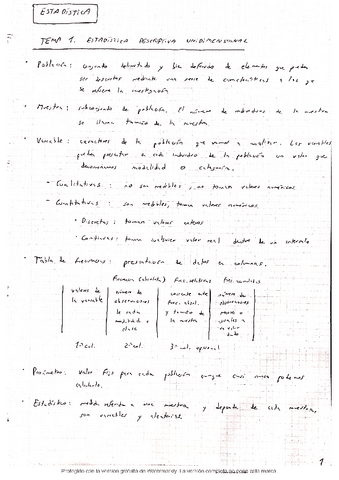 ESTADÍSTICA
TEMA 1. ESTADÍSTICA DESCRIPTIVA UNIDIMENSIONAL
• Población: conjunto delimitado y bien definido de elementos que pueden
ser descritos mediante una serie de características a las que
se refiere la investigación
• Muestra: subconjunto de población. El número de individuos de la muestra
se llama tamaño de la muestra
• Variable: caracteres de la población que vamos a analizar. Las variables
pueden presentar a cada individuo de la población un valor que
denominamos modalidad o categoría.
- Cualitativas: no son medibles, no toman valores numéricos
- Cuantitativas: son medibles, toman valores numéricos
- Discretas: toman valores enteros
- Continuas: toman cualquier valor real dentro de un intervalo
• Tabla de frecuencias: presentación de datos en columnas.
Frecuencia (absoluta) Frec. relativas Frec. acumuladas
valores de número de cociente entre número de
la variable observaciones frec. absol. observaciones
de cada y tamaño de menores o
modalidad o la muestra iguales a
clase
1ª col. 2ª col. 3ª col. opcional
• Parámetro: valor fijo para cada población aunque casi nunca podemos
calcularlo.
• Estadístico: medida referida a una muestra y depende de cada muestra,
son variables y aleatorios.
1